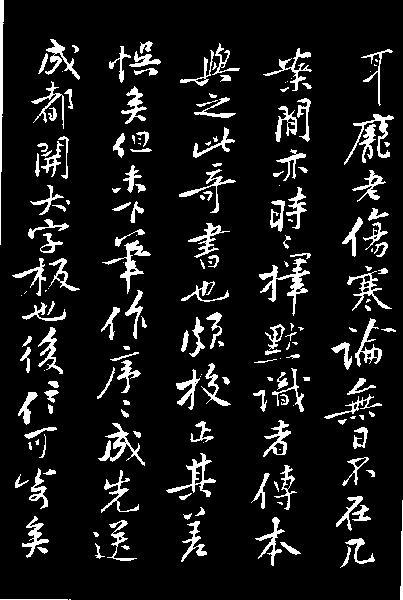 耳龐老傷寒論無日不在几
案間亦時〻擇默識者傳本
與之此奇書也頗校正其差
悞矣但未下筆作序〻成先送
成都開大字板也後信可寄矣